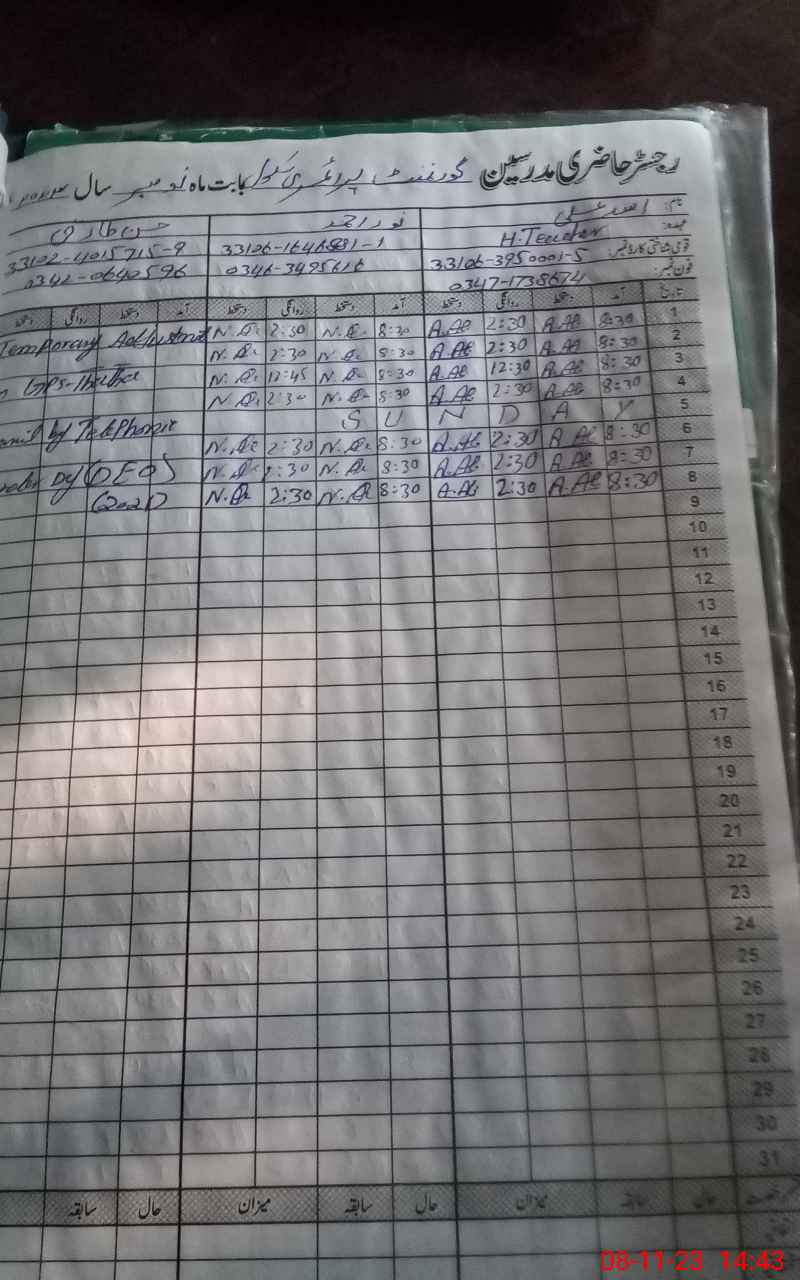 رجسٹر حاضری مدرسین گورنمنٹ پرائمری سکول بابت ماہ نومبر سال ۲۰۲۳
نام: اسد علی نور احمد حسن طارق
عہدہ: H.Teacher
قومی شناختی کارڈ نمبر: 33106-3950001-5 33106-1646981-1 33102-4015715-9
فون نمبر: 0347-1738674 0346-3495616 0342-0640596
تاریخ آمد دستخط روانگی دستخط آمد دستخط روانگی دستخط آمد دستخط روانگی دستخط
1 8:30 A.Al 2:30 A.Al 8:30 N.A. 2:30 N.A. Temporary Adjustment
2 8:30 A.Al 2:30 A.Al 8:30 N.A. 2:30 N.A.
3 8:30 A.Al 12:30 A.Al 8:30 N.A. 12:45 N.A. GPS-
4 8:30 A.Al 2:30 A.Al 8:30 N.A. 2:30 N.A.
5 S U N D A Y by Telephonic
6 8:30 A.Al 2:30 A.Al 8:30 N.A. 2:30 N.A.
7 8:30 A.Al 2:30 A.Al 8:30 N.A. 2:30 N.A. Dy (DEO)
8 8:30 A.Al 2:30 A.Al 8:30 N.A. 2:30 N.A.
9
10
11
12
13
14
15
16
17
18
19
20
21
22
23
24
25
26
27
28
29
30
31
حال سابقہ میزان حال سابقہ میزان حال سابقہ
08-11-23 14:43